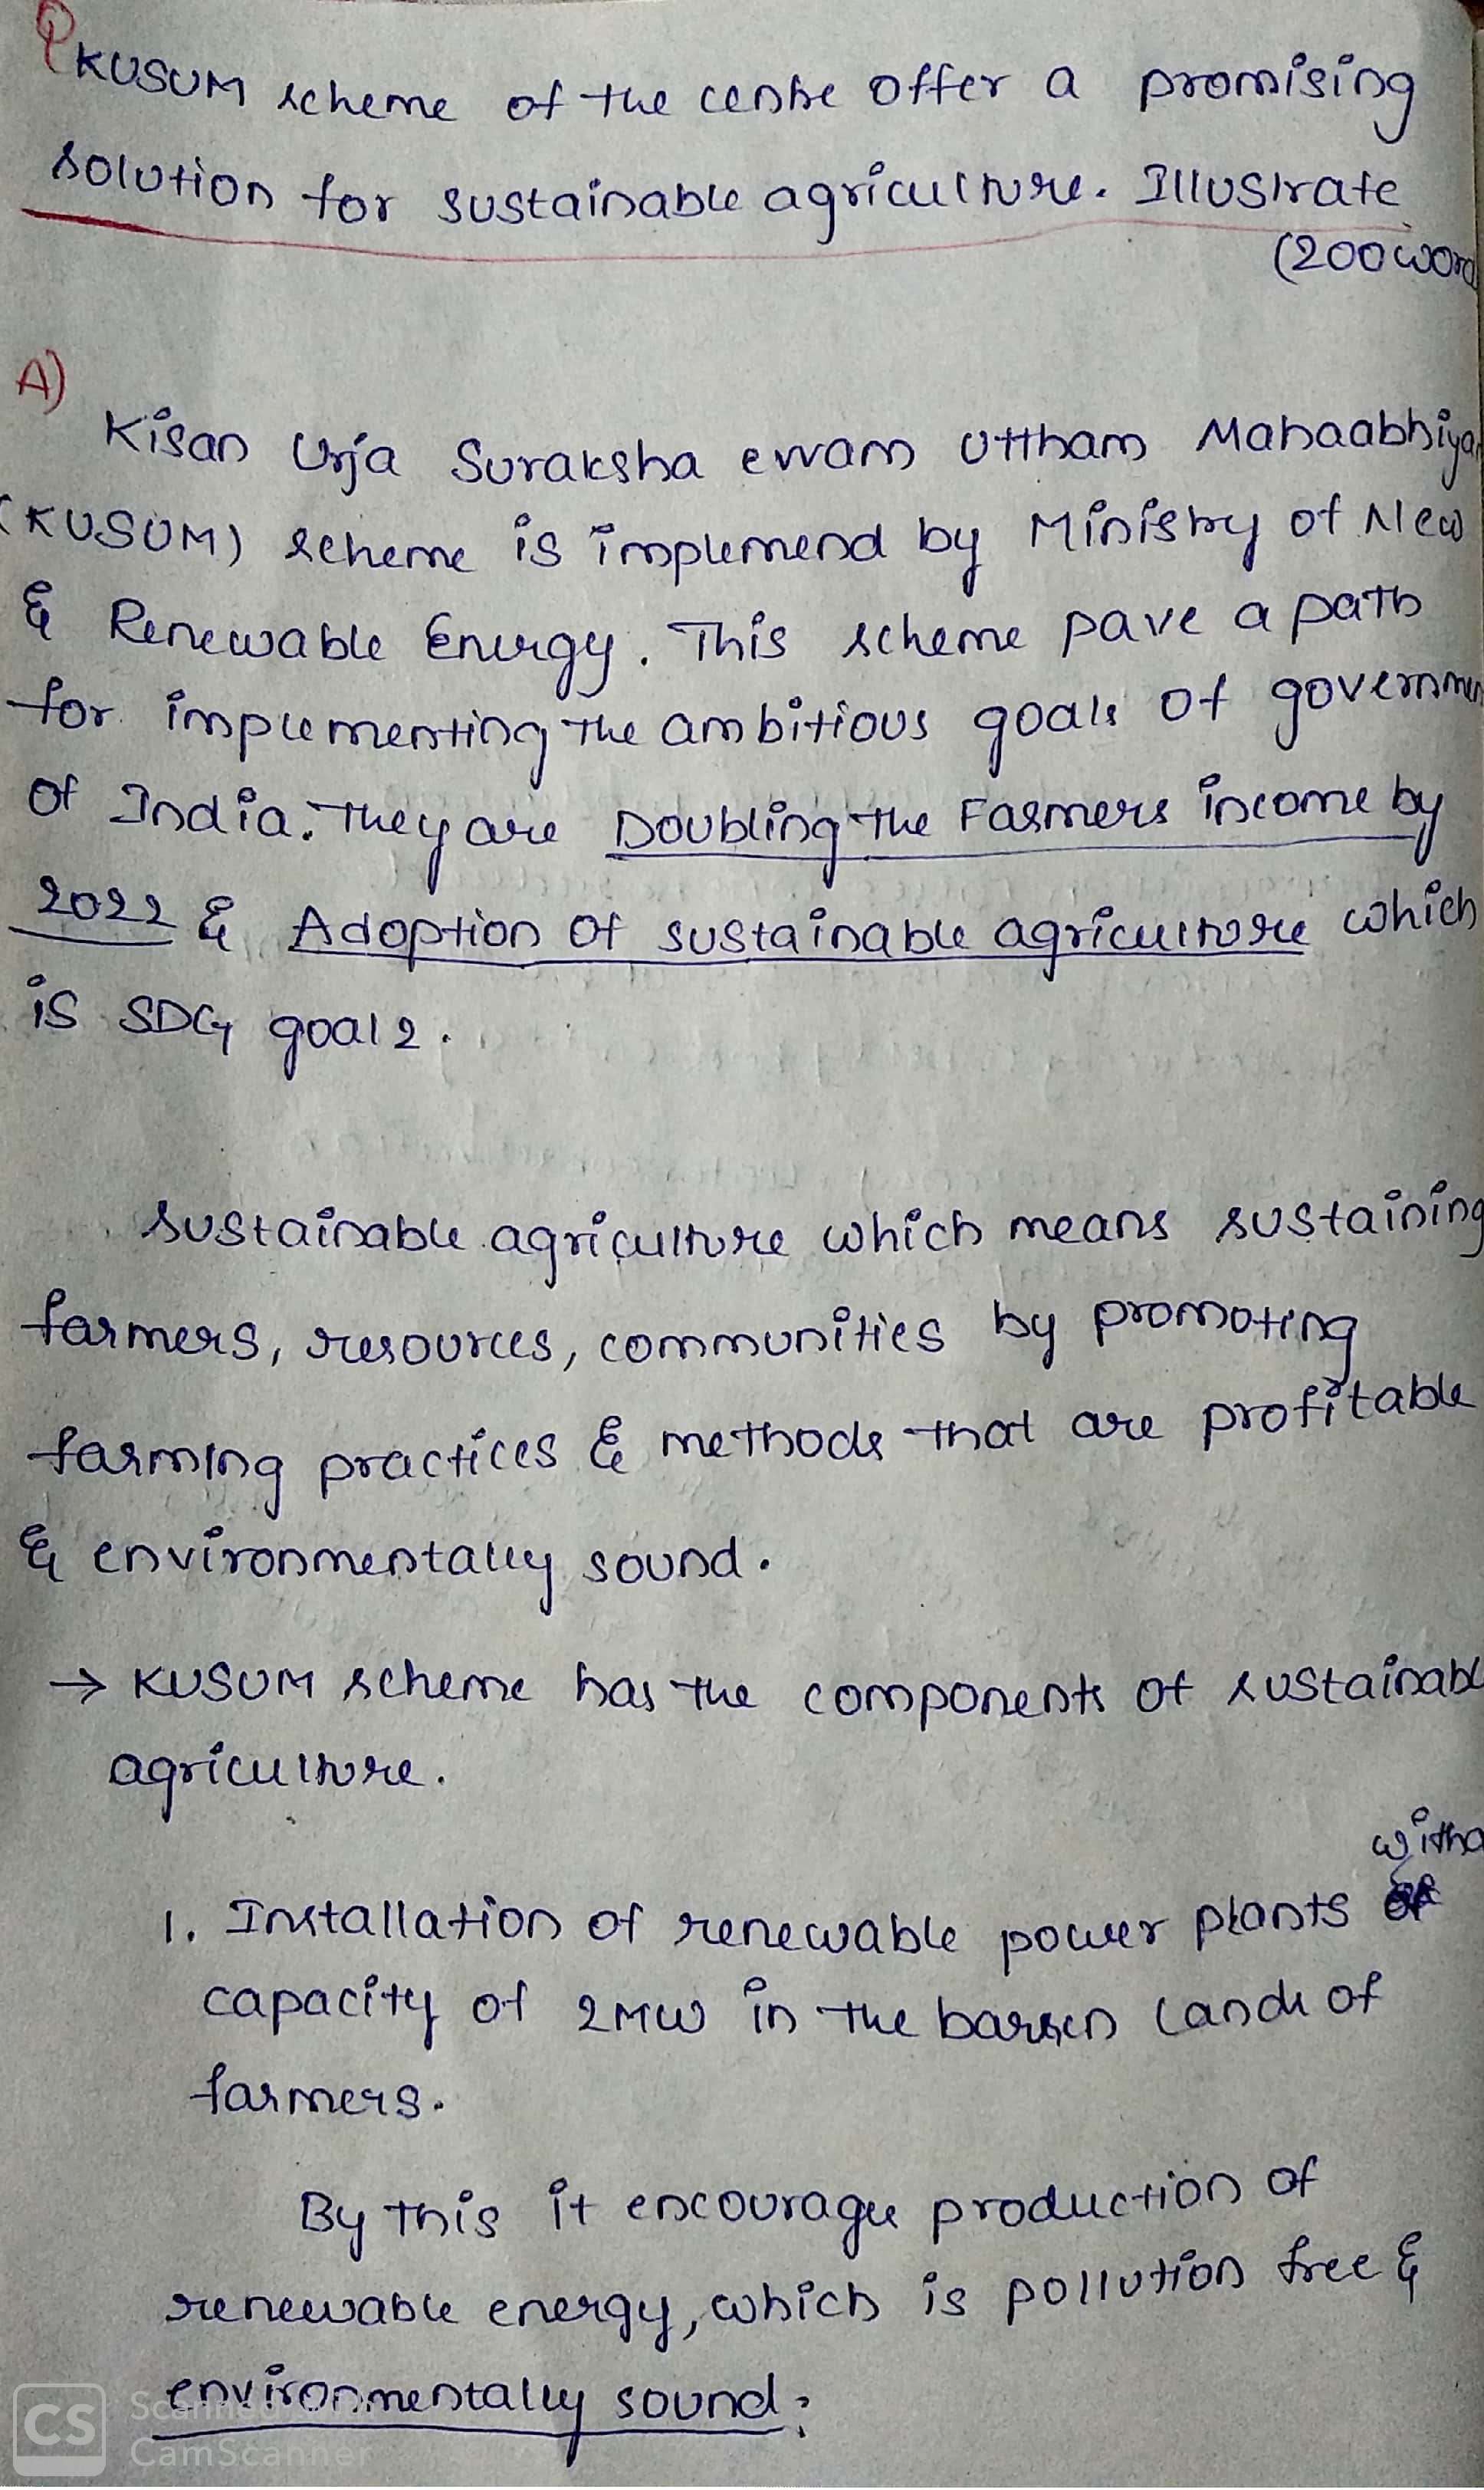 Q
KUSUM scheme of the centre offer a promising
solution for sustainable agriculture. Illustrate
(200 word
A)
Kisan Urja Suraksha evvam Uttham Mahaabhiyan
(KUSUM) scheme is implemend by Ministry of New
& Renewable Energy. This scheme pave a path
for implementing the ambitious goals of governmen
of India. They are Doubling the Farmers income by
2022 & Adoption of sustainable agriculture which
is SDG goal 2.
Sustainable agriculture which means sustaining
farmers, resources, communities by promoting
farming practices & methods that are profitable
& environmentally sound.
→ KUSUM scheme has the components of sustainabl
agriculture.
witha
1. Installation of renewable power plants
capacity of 2MW in the barren lands of
farmers.
By this it encourage production of
renewable energy, which is pollution free &
environmentally sound;
CS Scanned with
CamScanner